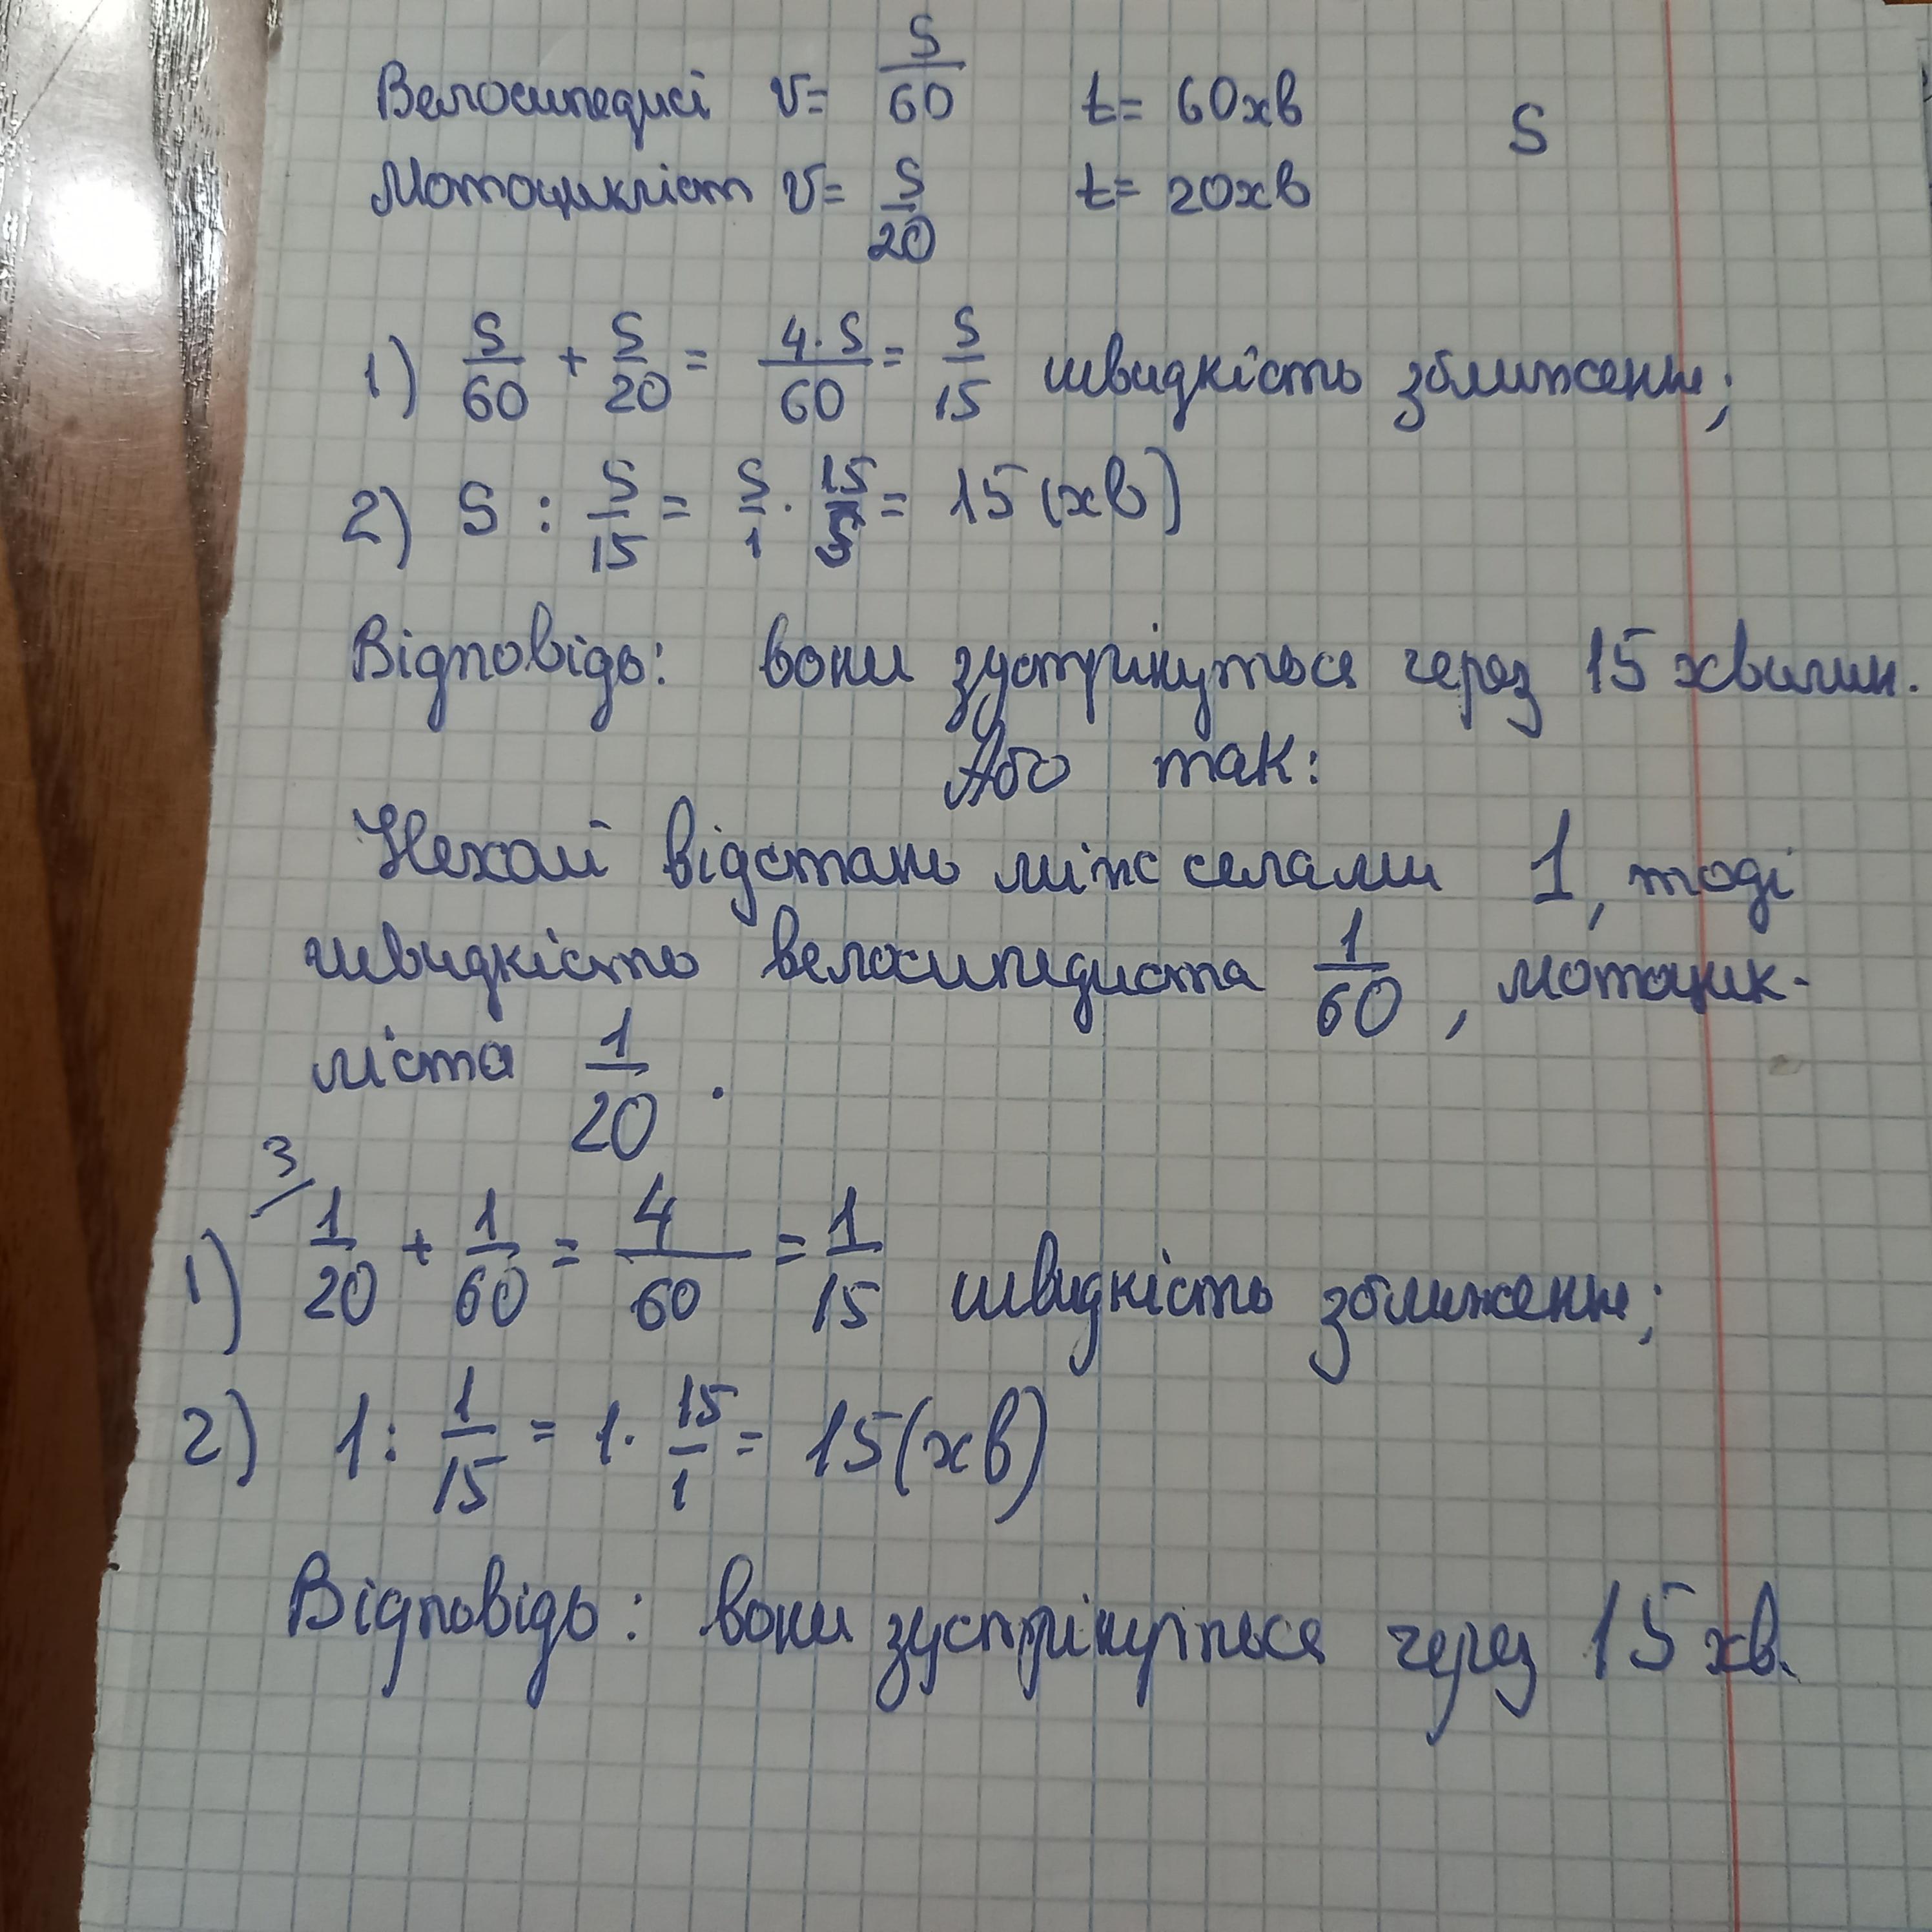 Велосипедист v = S/60 t = 60хв S
Мотоцикліст v = S/20 t = 20хв
1) S/60 + S/20 = 4·S/60 = S/15 швидкість зближення;
2) S : S/15 = S/1 · 15/S = 15 (хв)
Відповідь: вони зустрінуться через 15 хвилин.
Або так:
Нехай відстань між селами 1, тоді
швидкість велосипедиста 1/60, мотоцик-
ліста 1/20.
3
1) 1/20 + 1/60 = 4/60 = 1/15 швидкість зближення;
2) 1 : 1/15 = 1 · 15/1 = 15 (хв)
Відповідь: вони зустрінуться через 15 хв.